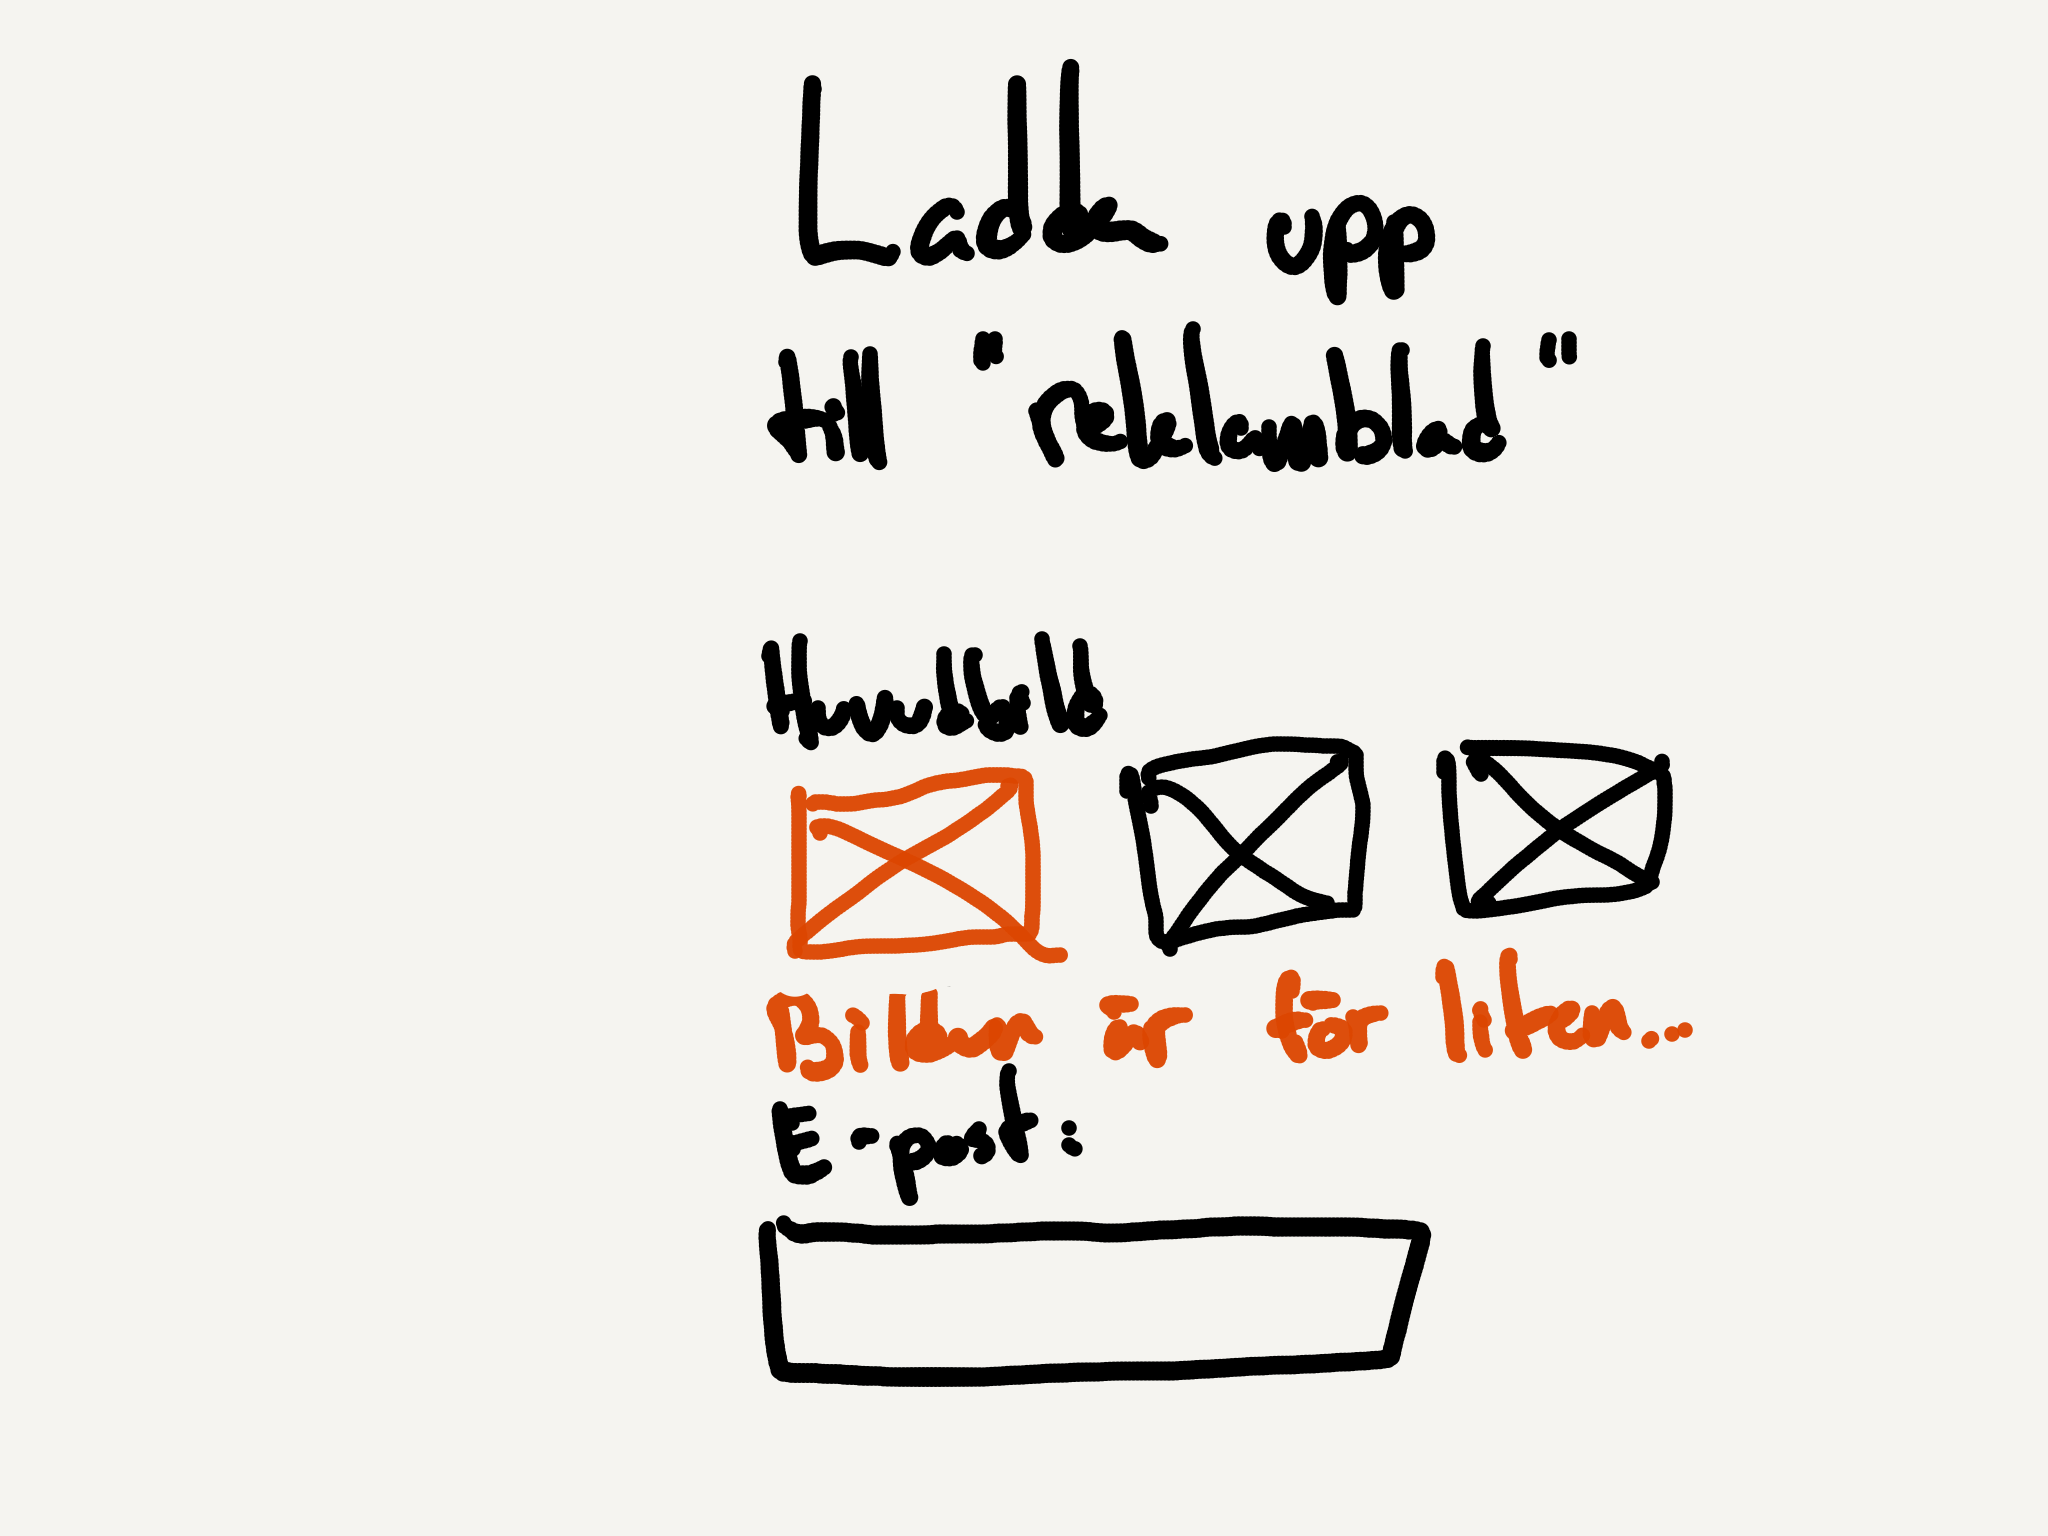 Ladda upp
till "reklamblad"
Huvudbild
Bilden är för liten...
E-post: